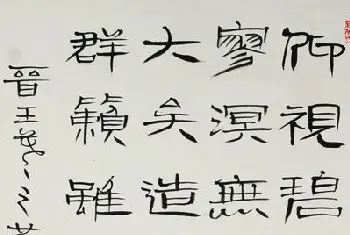 仰視碧
廖溟無
大矣造
群籟雖
晉王羲之